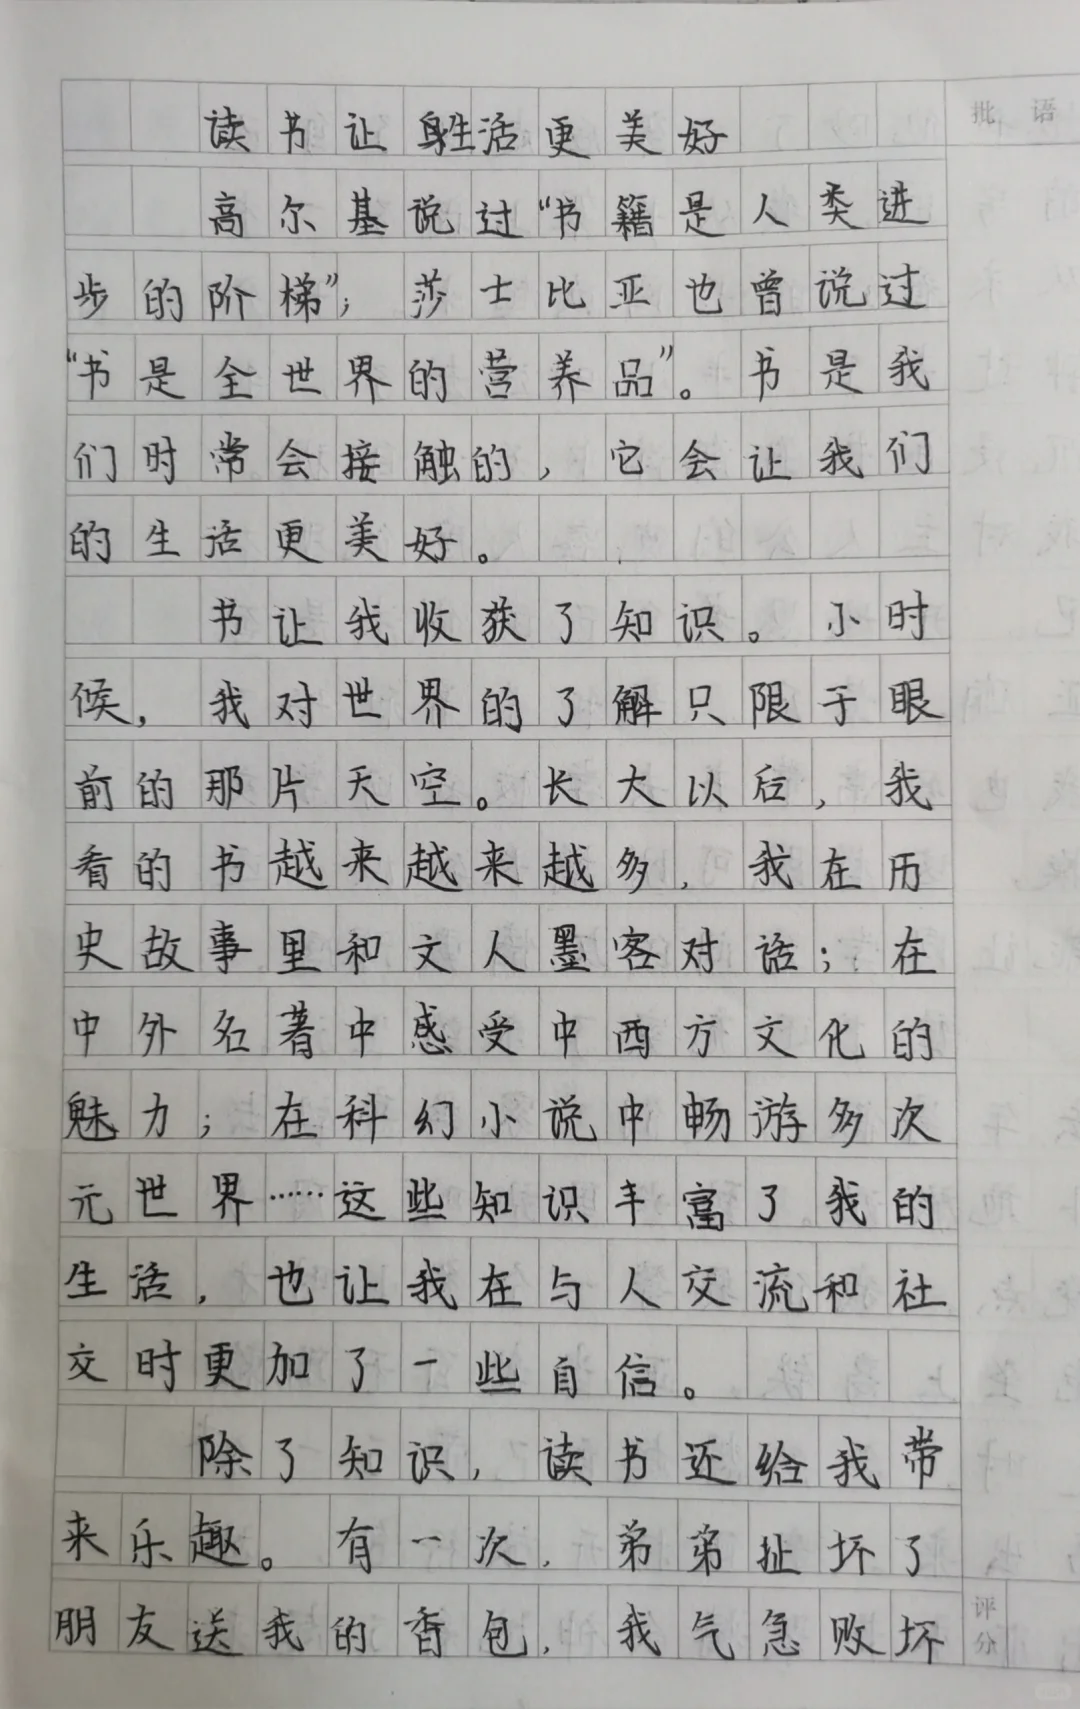 读书让生活更美好
批语
高尔基说过“书籍是人类进
步的阶梯”；莎士比亚也曾说过
“书是全世界的营养品”。书是我
们时常会接触的，它会让我们
的生活更美好。
书让我收获了知识。小时
候，我对世界的了解只限于眼
前的那片天空。长大以后，我
看的书越来越来越多，我在历
史故事里和文人墨客对话；在
中外名著中感受中西方文化的
魅力；在科幻小说中畅游多次
元世界……这些知识丰富了我的
生活，也让我在与人交流和社
交时更加了一些自信。
除了知识，读书还给我带
来乐趣。有一次，弟弟扯坏了
朋友送我的香包，我气急败坏
评分